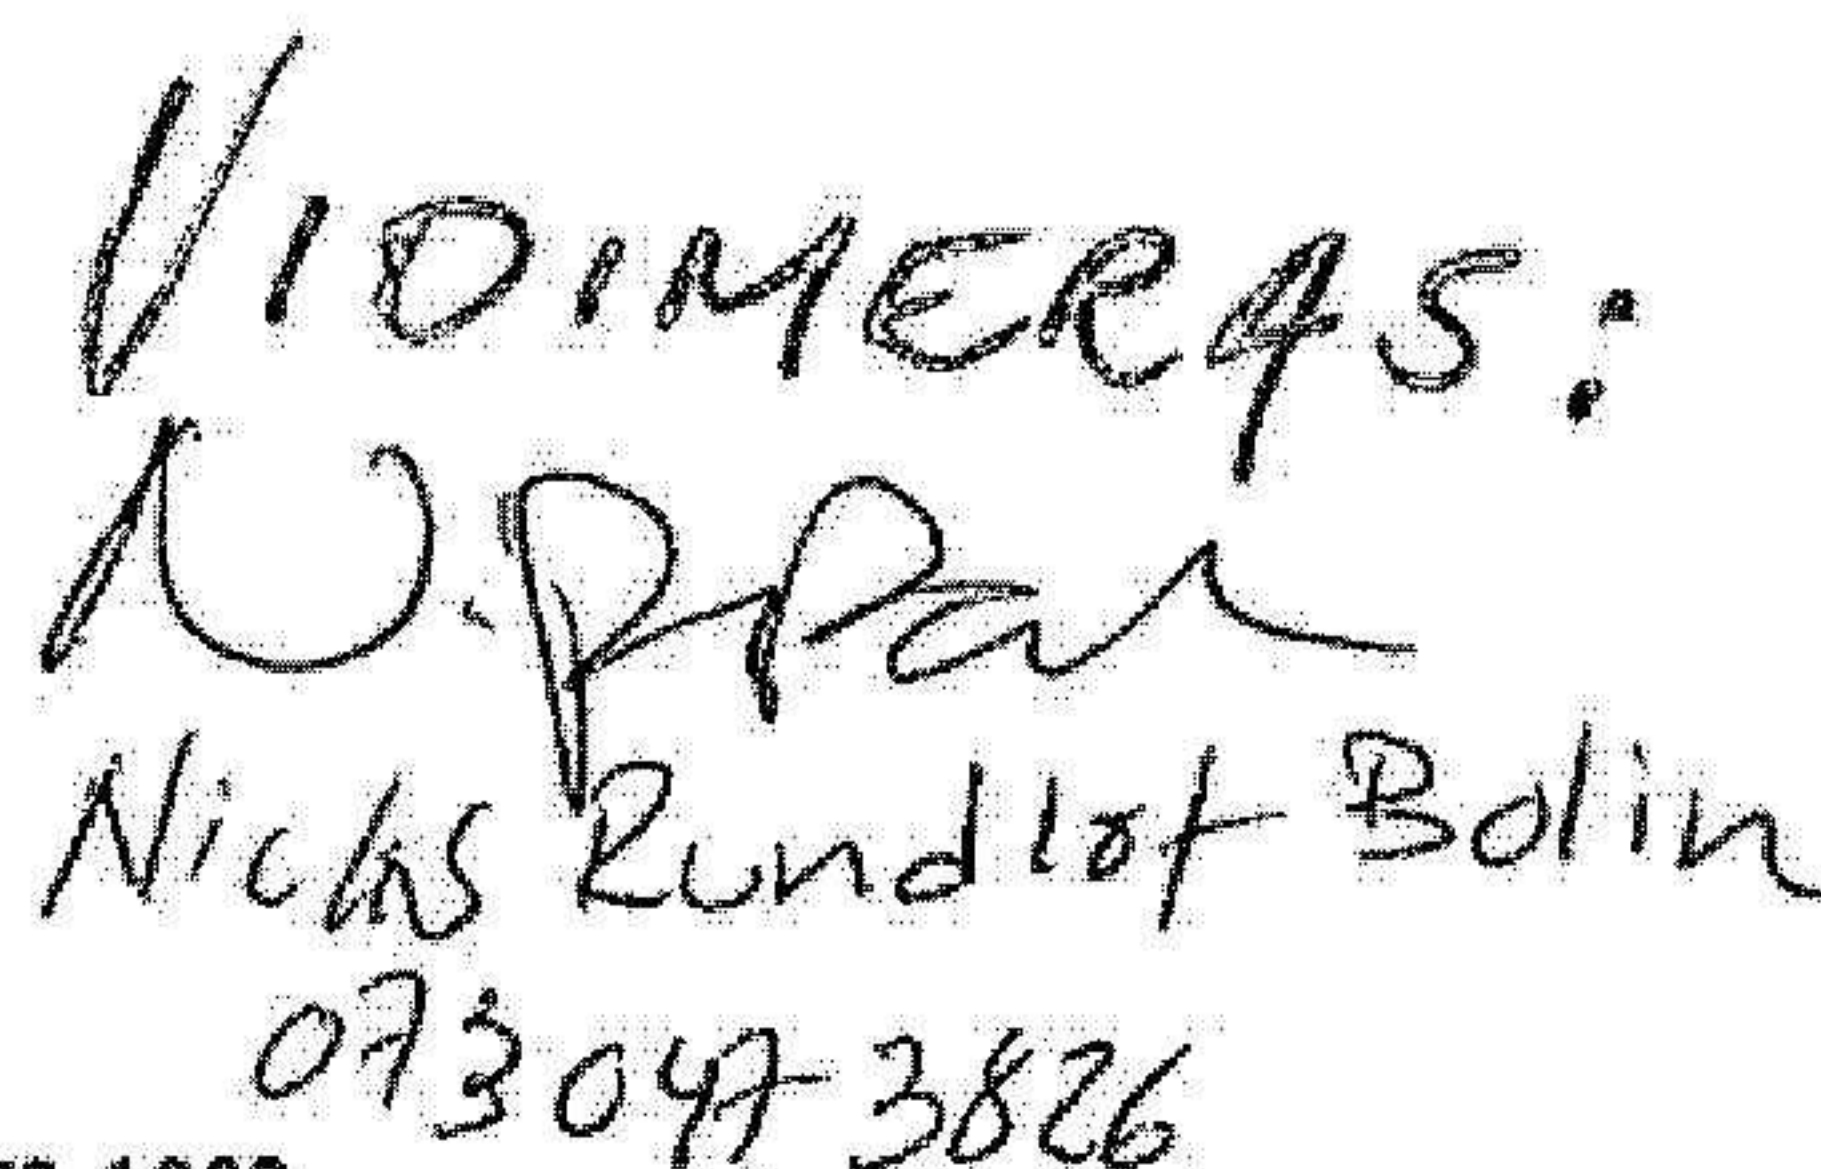 VIDIMERAS:
Nicks Rundlöt Bolin
073 047 3826